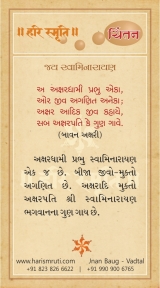 ॥ હરિ સ્મૃતિ ॥
ચિંતન
જય સ્વામિનારાયણ
અ અક્ષરધામી પ્રભુ એકા,
ઓર જીવ અગણિત અનેકા;
અક્ષર આદિક જીવ કહાયે,
સબ અક્ષરપતિ કે ગુણ ગાવે.
(બાવન અક્ષરી)
અક્ષરધામી પ્રભુ સ્વામિનારાયણ
એક જ છે. બીજા જીવો-મુક્તો
અગણિત છે. અક્ષરાદિ મુક્તો
અક્ષરપતિ શ્રી સ્વામિનારાયણ
ભગવાનના ગુણ ગાય છે.
www.harismruti.com
Jnan Baug - Vadtal
+91 823 826 6622
+91 990 900 6765